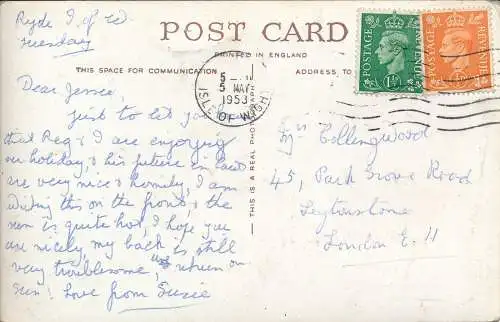 Ryde I. of W.
Tuesday
POST CARD
PRINTED IN ENGLAND
THIS SPACE FOR COMMUNICATION
ADDRESS TO
POSTAGE
REVENUE
1½D
POSTAGE
REVENUE
5
5 MAY
1953
ISLE OF WIGHT
THIS IS A REAL PHOTOGRAPH
Dear Jessie,
Just to let you
that Reg & I are enjoying
our holiday, & his
are very nice & homely, I am
writing this on the front, & the
sun is quite hot, I hope you
are nicely my back is still
very troublesome, return on
Sun: Love from Susie
Collingwood
45, Park Grove Road
Leytonstone
London E.11